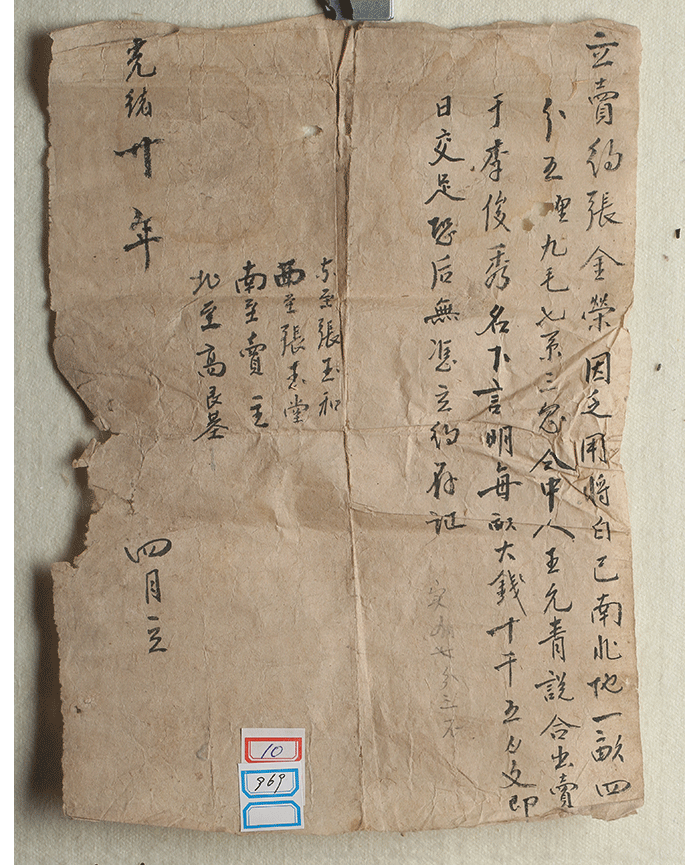 立賣約張金榮因乏用將自己南北地一畝四
分五厘九毛七系三忽仝中人王允青説合出賣
于李俊秀名下言明每畝大錢廿千五百文即
日交足恐后無憑立約存証
東至張玉和
西至張志堂
南至賣主
北至高良基
光緒廿年
四月立
10
969